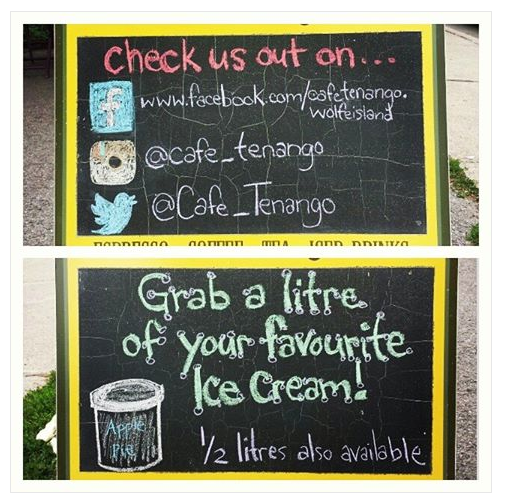 check us out on...
f
www.facebook.com/cafetenango.
wolfeisland
@cafe_tenango
@Cafe_Tenango
ESPRESSO COFFEE TEA ICED DRINKS
Grab a litre
of your favourite
Ice Cream!
Apple
Pie
1/2 litres also available